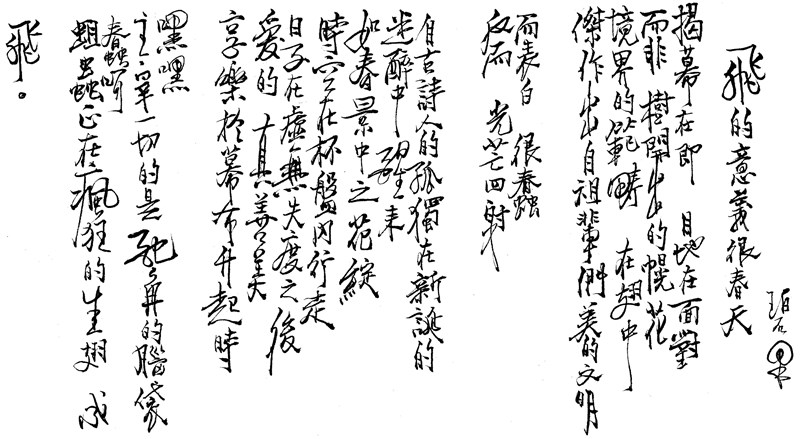 飛的意義很春天
碧果
揭幕在即 目地在面對
而非 樹開出的幌花
境界的範疇 在翅中
傑作出自祖輩們美的文明
而表白 很春蟲
反而 光芒四射
自古詩人的孤獨在新誕的
迷醉中 醒來
如春景中之花綻
時空在杯盤內行走
日子在虛無失度之後
愛的 真善美
享樂於幕布升起時
嘿嘿
主宰一切的是 的腦袋
春蟲啊
蛆蟲正在瘋狂的生翅 成
飛。